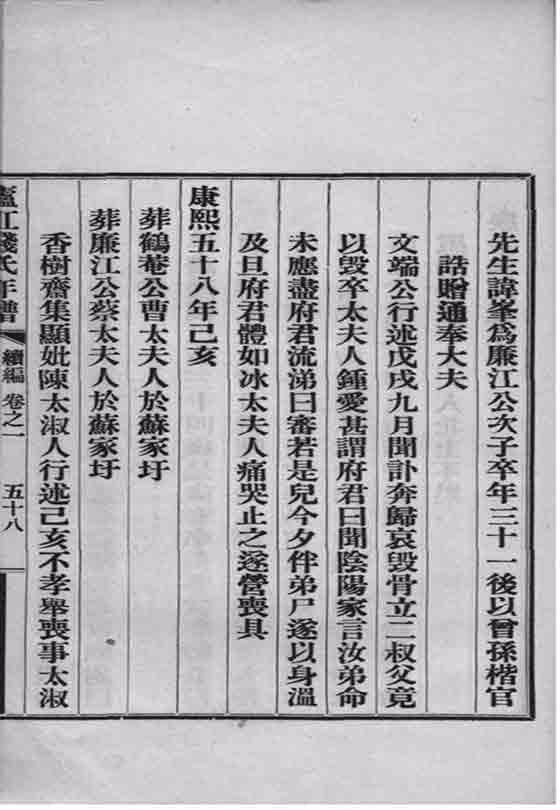 先生諱峯爲廉江公次子卒年三十一後以曾孫楷官
誥贈通奉大夫
文端公行述戊戌九月聞訃奔歸哀毁骨立二叔父竟
以毁卒太夫人鍾愛甚謂府君曰聞陰陽家言汝弟命
未應盡府君流涕曰審若是兒今夕伴弟尸遂以身溫
及旦府君體如冰太夫人痛哭止之遂營喪具
康熙五十八年己亥
葬鶴菴公曹太夫人於蘇家圩
葬廉江公蔡太夫人於蘇家圩
香樹齋集顯妣陳太淑人行述己亥不孝舉喪事太淑
廬江錢氏年譜 續編 卷之一 五十八